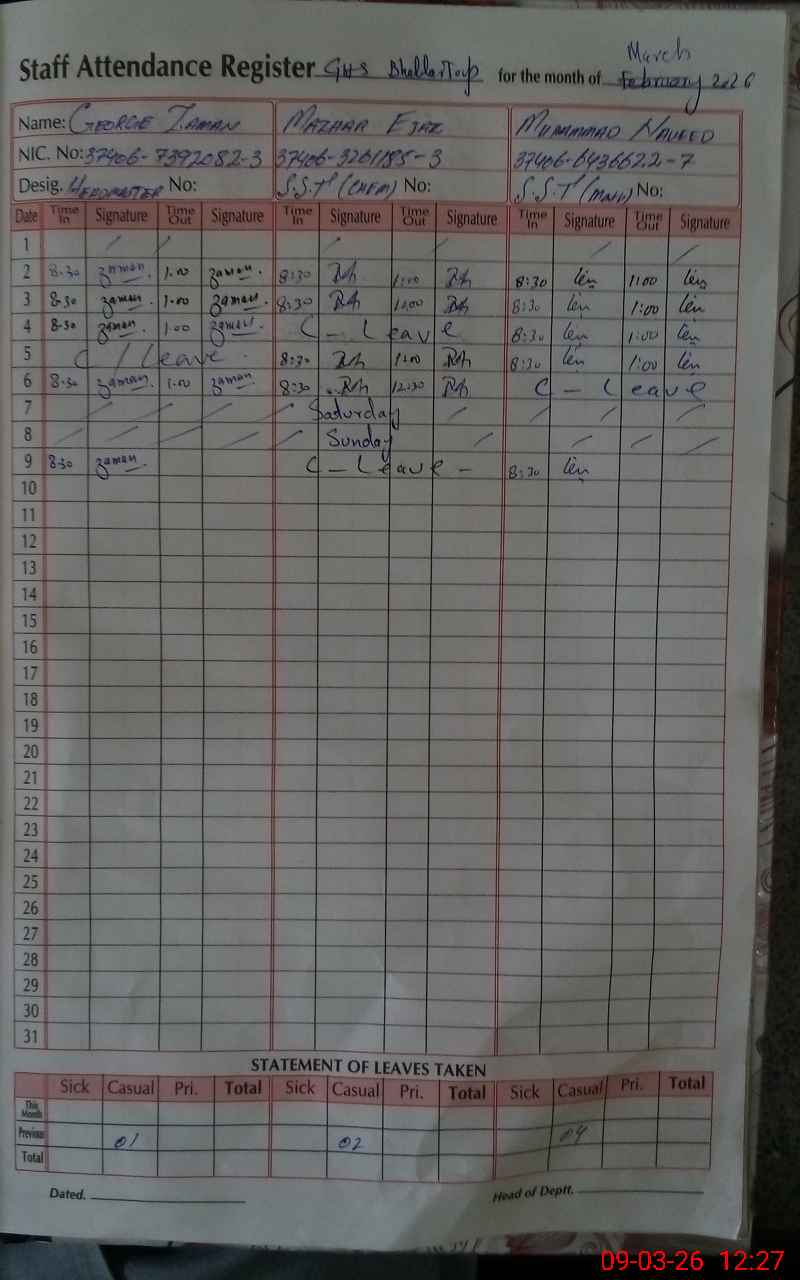 Staff Attendance Register GHS for the month of February March 2026
Name: GEORGE ZAMAN MAZHAR EJAZ MUHAMMAD NAVEED
NIC. No: 37406-7392082-3 37406-3261185-3 37406-6436622-7
Desig. HEADMASTER No: S.S.T (CHEM) No: S.S.T (MATH) No:
Date Time In Signature Time Out Signature Time In Signature Time Out Signature Time In Signature Time Out Signature
1
2 8.30 zaman. 1.00 zaman. 8:30 1:00 8:30 1:00
3 8.30 zaman. 1.00 zaman. 8:30 8:30 1:00
4 8.30 zaman. 1.00 zaman. C - Leave 8:30 1:00
5 C / Leave. 8:30 8:30 1:00
6 8.30 zaman. 1.00 zaman. 8:30 12:30 C - Leave
7 Saturday
8 Sunday
9 8.30 zaman. C - Leave - 8:30
10
11
12
13
14
15
16
17
18
19
20
21
22
23
24
25
26
27
28
29
30
31
STATEMENT OF LEAVES TAKEN
Sick Casual Pri. Total Sick Casual Pri. Total Sick Casual Pri. Total
This Month
Previous 01 02 04
Total
Dated. Head of Deptt.
09-03-26 12:27